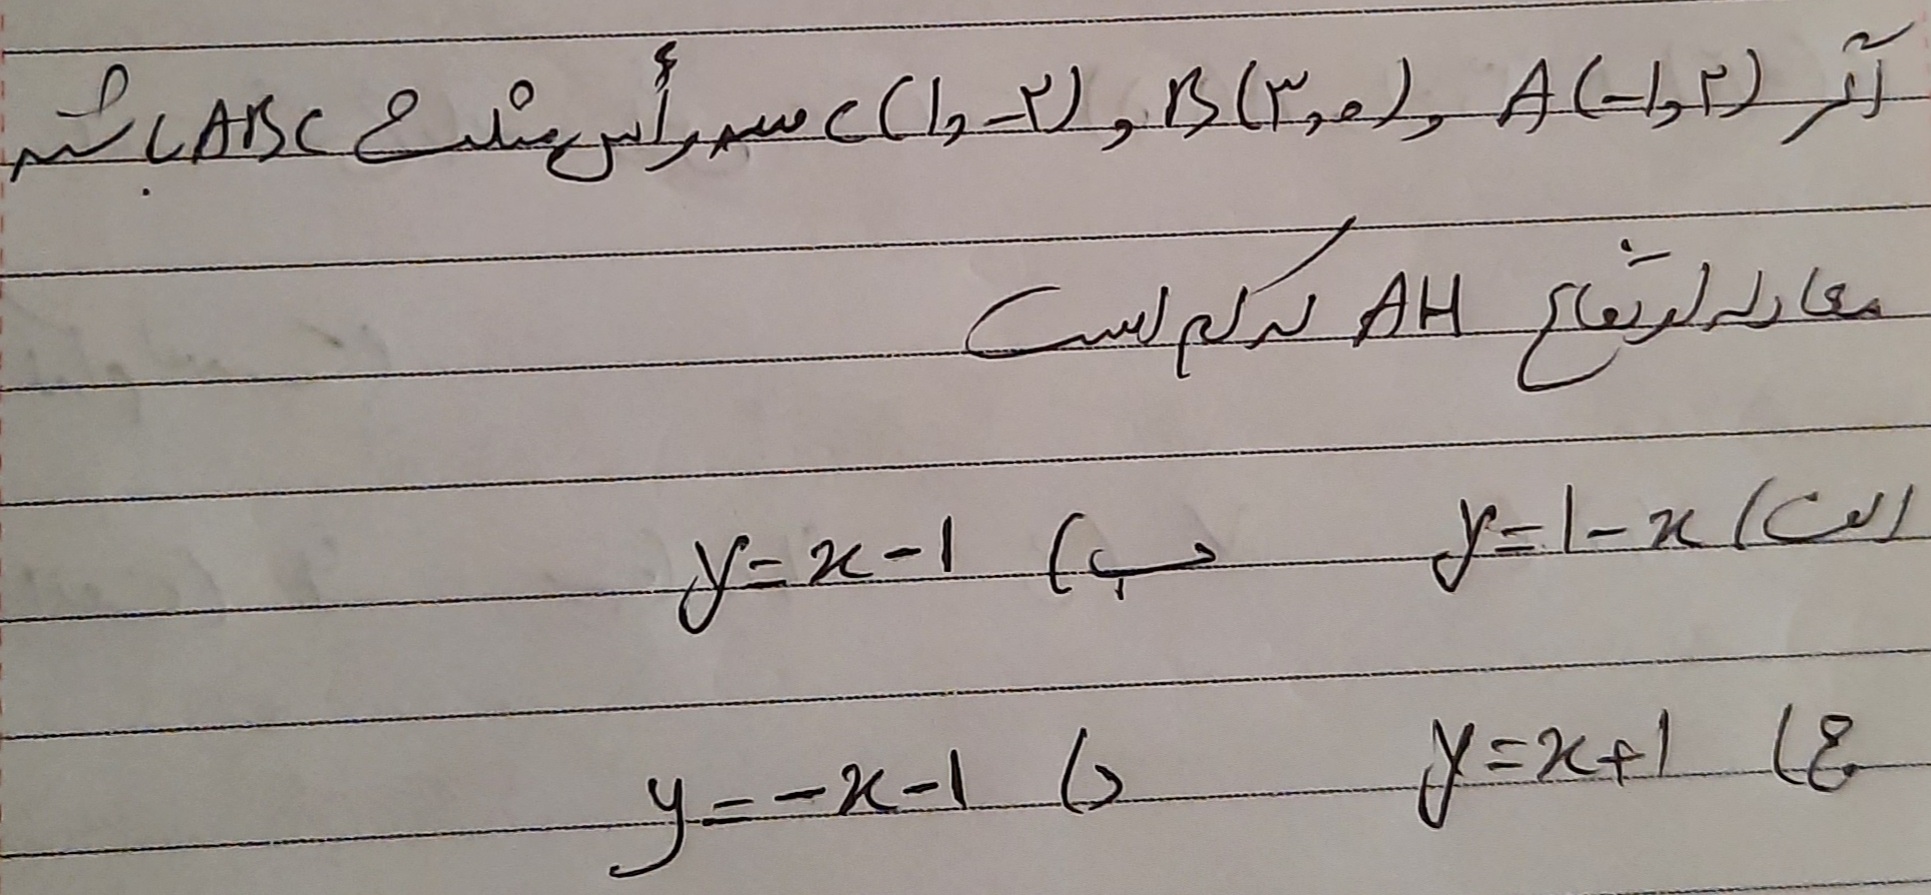 اگر A(-1,۲) , B(۳,۰) , C(1,-۲) سه رأس مثلث ABC باشند
معادله ارتفاع AH کدام است
الف) y=1-x ب) y=x-1
ج) y=x+1 د) y=-x-1